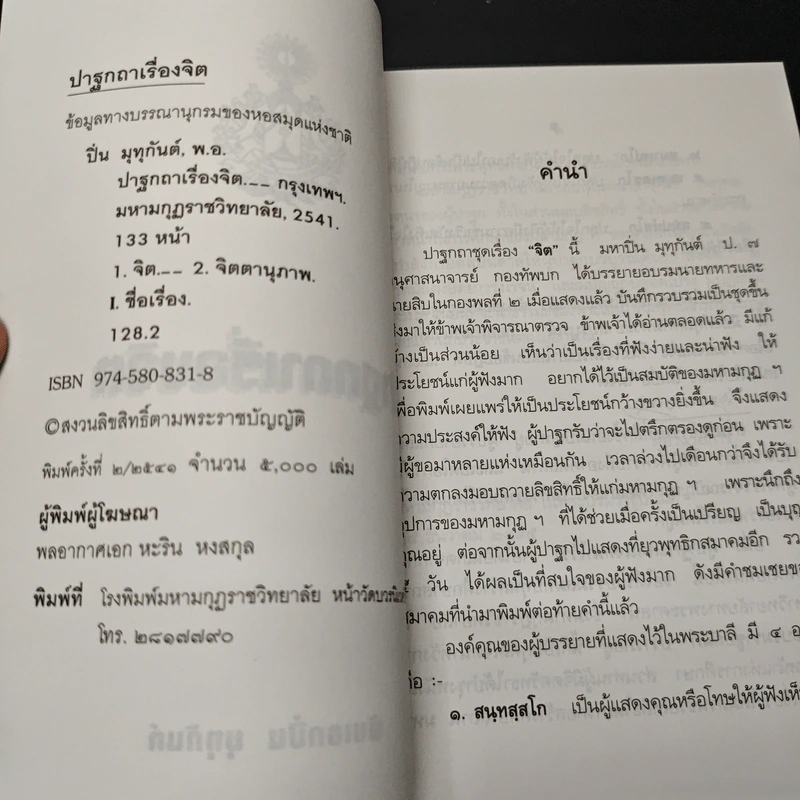 ปาฐกถาเรื่องจิต
ข้อมูลทางบรรณานุกรมของหอสมุดแห่งชาติ
ปิ่น มุทุกันต์, พ.อ.
ปาฐกถาเรื่องจิต.__ กรุงเทพฯ.
มหามกุฏราชวิทยาลัย, 2541.
133 หน้า
1. จิต.__ 2. จิตตานุภาพ.
I. ชื่อเรื่อง.
128.2
ISBN 974-580-831-8
©สงวนลิขสิทธิ์ตามพระราชบัญญัติ
พิมพ์ครั้งที่ ๒/๒๕๔๑ จำนวน ๕,๐๐๐ เล่ม
ผู้พิมพ์ผู้โฆษณา
พลอากาศเอก หะริน หงสกุล
พิมพ์ที่ โรงพิมพ์มหามกุฏราชวิทยาลัย หน้าวัดบวรนิเวศ
โทร. ๒๘๑๗๗๙๐
คำนำ
ปาฐกถาชุดเรื่อง “จิต” นี้ มหาปิ่น มุทุกันต์ ป. ๗
นุศาสนาจารย์ กองทัพบก ได้บรรยายอบรมนายทหารและ
ายสิบในกองพลที่ ๒ เมื่อแสดงแล้ว บันทึกรวบรวมเป็นชุดขึ้น
่งมาให้ข้าพเจ้าพิจารณาตรวจ ข้าพเจ้าได้อ่านตลอดแล้ว มีแก้
้างเป็นส่วนน้อย เห็นว่าเป็นเรื่องที่ฟังง่ายและน่าฟัง ให้
ประโยชน์แก่ผู้ฟังมาก อยากได้ไว้เป็นสมบัติของมหามกุฏ ฯ
พื่อพิมพ์เผยแพร่ให้เป็นประโยชน์กว้างขวางยิ่งขึ้น จึงแสดง
วามประสงค์ให้ฟัง ผู้ปาฐกรับว่าจะไปตรึกตรองดูก่อน เพราะ
ผู้ขอมาหลายแห่งเหมือนกัน เวลาล่วงไปเดือนกว่าจึงได้รับ
วามตกลงมอบถวายลิขสิทธิ์ให้แก่มหามกุฏ ฯ เพราะนึกถึง
ุปการของมหามกุฏ ฯ ที่ได้ช่วยเมื่อครั้งเป็นเปรียญ เป็นบุญ
คุณอยู่ ต่อจากนั้นผู้ปาฐกไปแสดงที่ยุวพุทธิกสมาคมอีก รว
วัน ได้ผลเป็นที่สบใจของผู้ฟังมาก ดังมีคำชมเชยขอ
สมาคมที่นำมาพิมพ์ต่อท้ายคำนี้แล้ว
องค์คุณของผู้บรรยายที่แสดงไว้ในพระบาลี มี ๔ อ
่อ :-
๑. สนฺทสฺสโก เป็นผู้แสดงคุณหรือโทษให้ผู้ฟังเห็